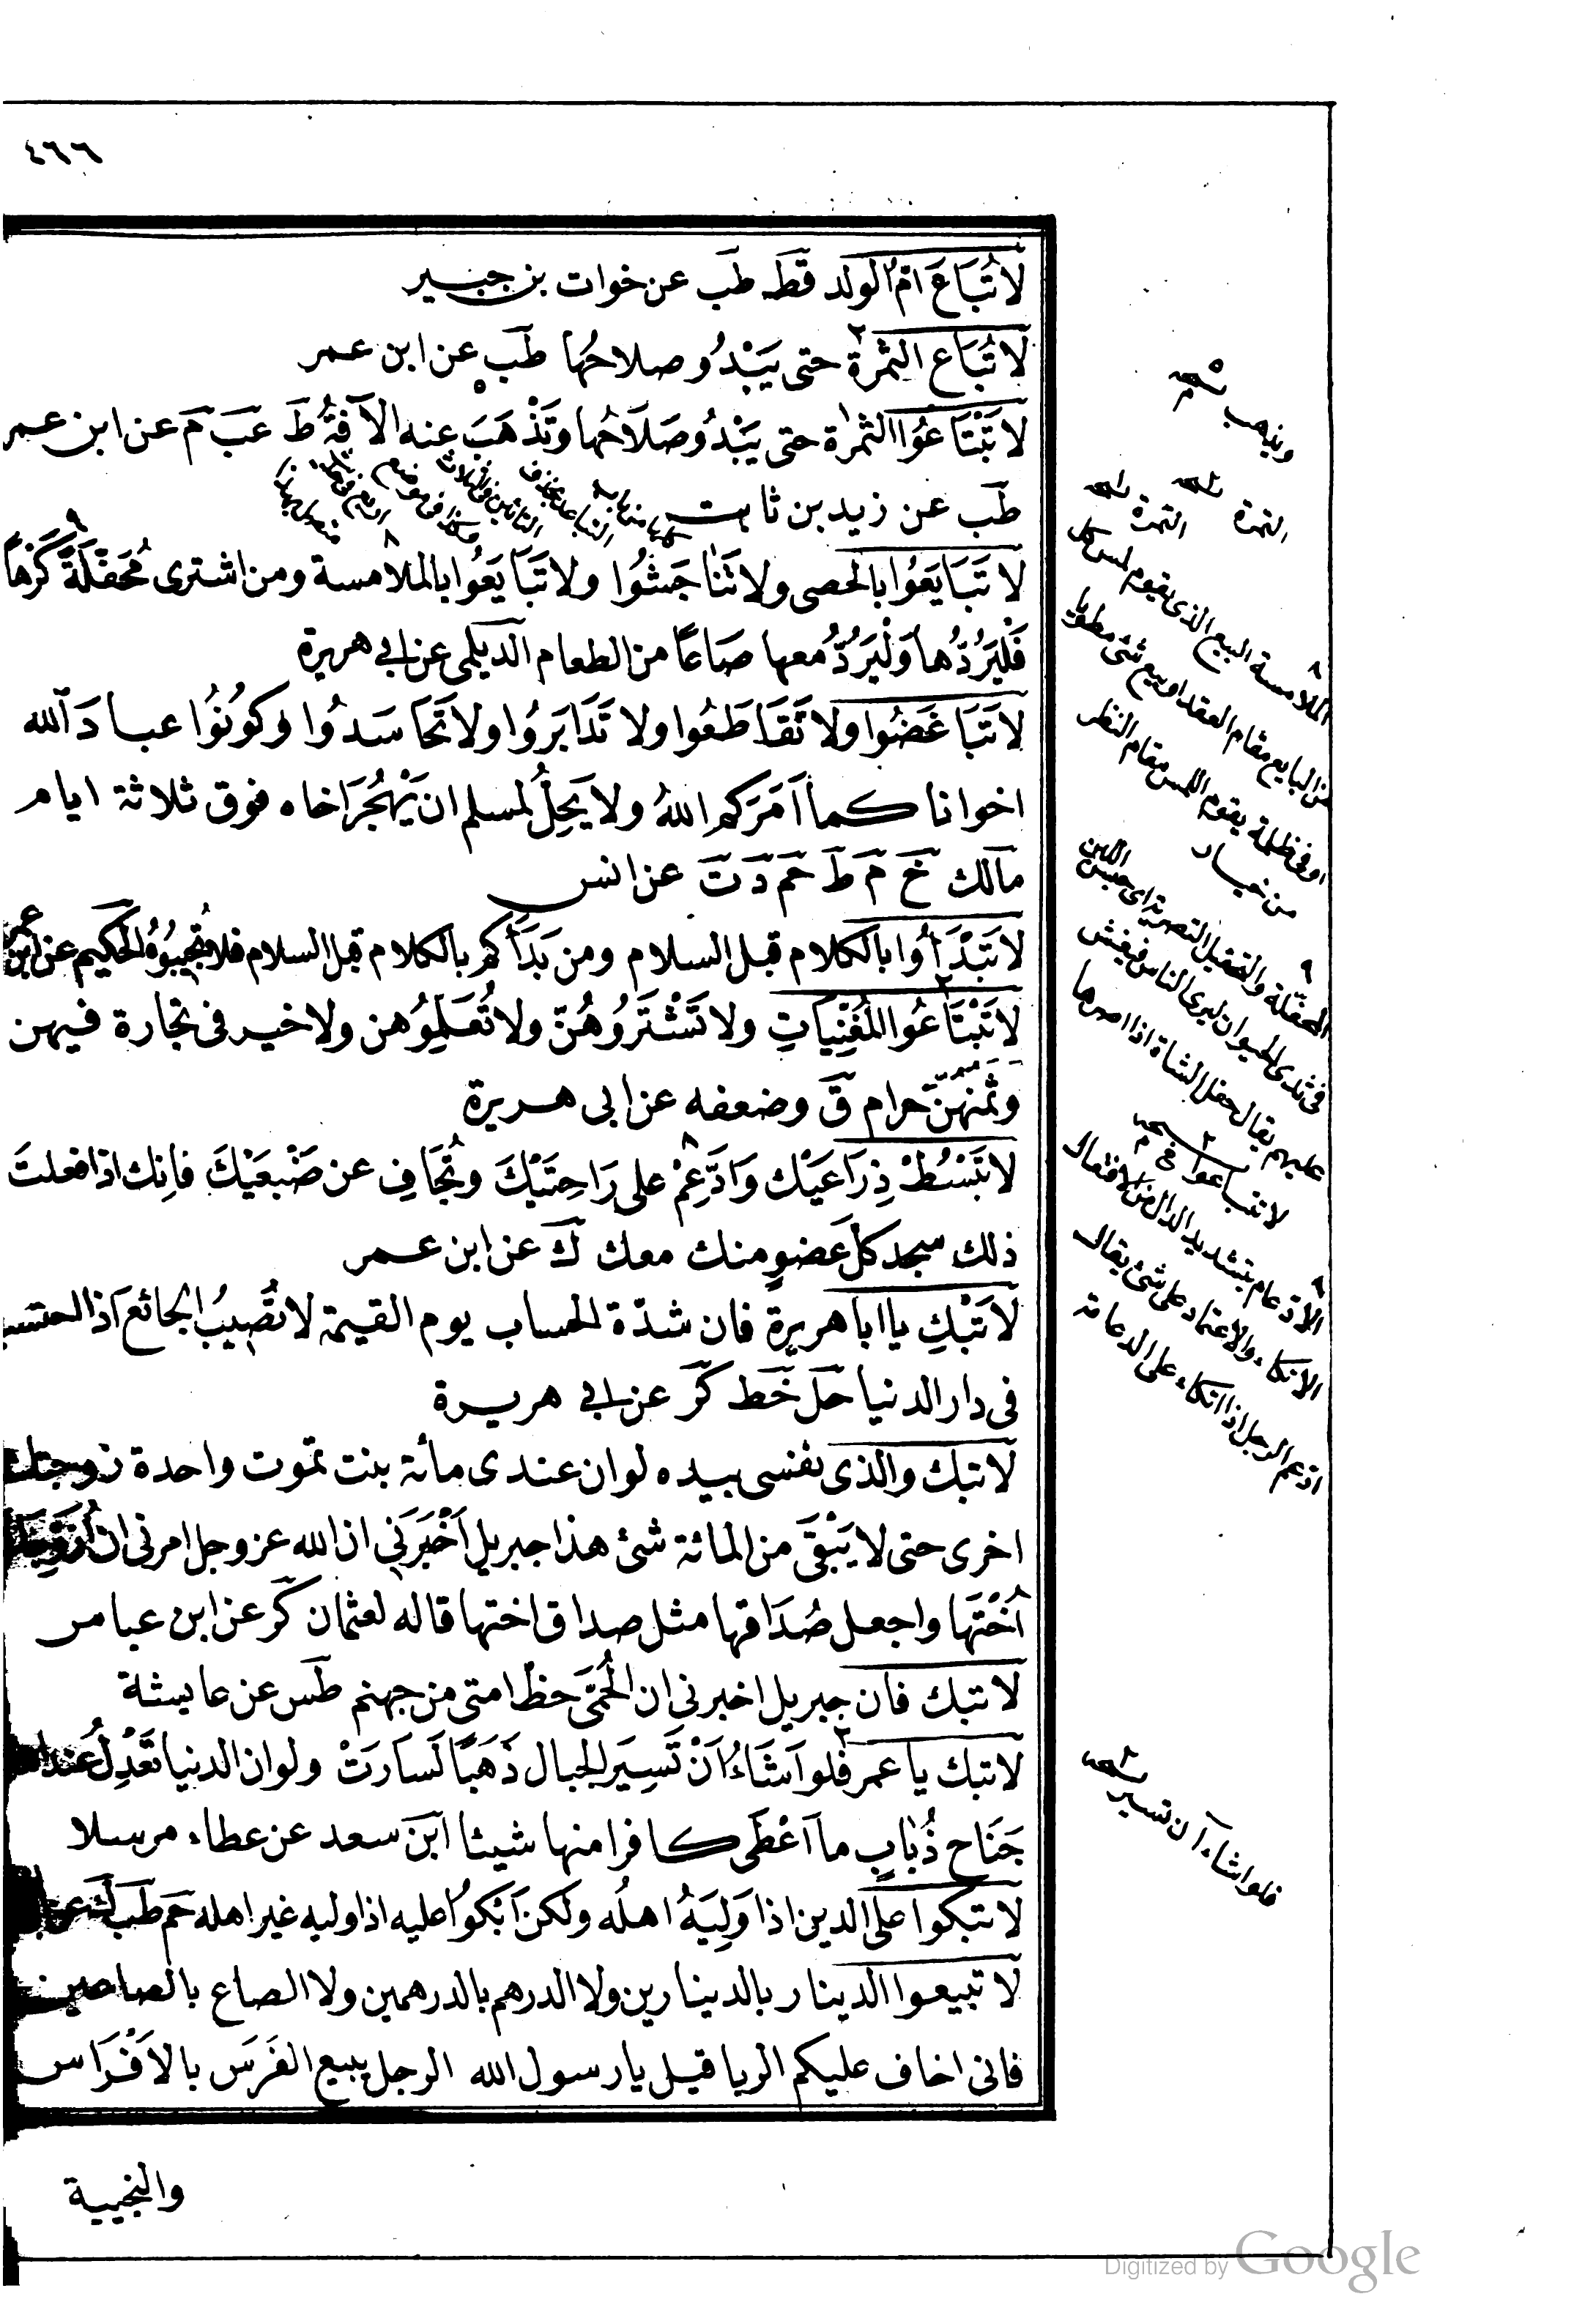 ٤٦٦
لَا تُبَاعَ امّ الولد قَطَ طَب عن خوات بن جبير
لَا تُبَاع الثمرة حتى يَبْدُو صلاحُها طَب عن ابن عمر
لا تَبْتَاعُوا الثمرة حتى يَبْدُو صَلَاحُها وتَذْهَبَ عنه الآفةُ طَ عَب مَ عن ابن عمر
طَب عن زيد بن ثابت
لا تَبَايَعُوا بالحصى ولا تَنَاجَشُوا ولا تَبَايَعُوا بالملامسة ومن اشترى مُحَفَّلَةً كَرِهَا
فَلْيَرُدَّها وَلْيَرُدَّ معها صَاعًا من الطعام الديلمى عن ابى هريرة
لا تَبَاغَضُوا ولا تَقَاطَعُوا ولا تَدَابَرُوا ولا تَحَاسَدُوا وكُونُوا عبادَ الله
اخوانا كما اَمَرَكم اللهُ ولا يَحِلُّ لمسلم ان يَهْجُرَ اخاه فوق ثلاثة ايام
مالك خَ مَ طَ حَم دَ تَ عن انس
لا تَبْدَأُوا بالكلام قبل السلام ومن بَدَأَكم بالكلام قبل السلام فلا تُجِيبُوهُ الحكيم عن ابن عمر
لا تَبْتَاعُوا المُغَنِّيَاتِ ولا تَشْتَرُوهُنّ ولا تُعَلِّمُوهن ولا خير فى تجارة فيهن
وثَمَنُهُنّ حرام قَ وضعفه عن ابى هريرة
لا تَبْسُطْ ذِرَاعَيْك وَادَّعِمْ على رَاحِتَيْكَ وتُجَافِ عن ضَبْعَيْكَ فاِنك اذا فعلتَ
ذلك سجد كل عَضوٍ منك معك كَ عن ابن عمر
لا تَبْكِ يا ابا هريرة فان شدّة الحساب يوم القيمة لا تُصِيبُ الجائع اذا احتسب
فى دار الدنيا حَل خَط كَر عن ابى هريرة
لا تبك والذى نفسى بيده لو ان عندى مائة بنت تموت واحدة زوجتك
اخرى حتى لا يَبْقَى من المائة شئ هذا جبريل اَخْبَرَنِي ان الله عز وجل امرنى ان
اُخْتَها واجعل صُدَاقها مثل صداق اختها قاله لعثمان كَر عن ابن عباس
لا تبك فان جبريل اخبرنى ان الحُمَّى حظ امتى من جهنم طَس عن عايشة
لا تبك يا عمر فلو اَشَاءُ اَنْ تَسِيَر الجبال ذَهَبًا لَسارَتْ ولو ان الدنيا تَعْدِلُ عند الله
جَنَاح ذُبَابٍ ما اَعْطَى كافرا منها شيئا ابن سعد عن عطاء مرسلا
لا تبكوا على الدين اذا وَلِيَهُ اهلُه ولكن اَبْكُوا عليه اذا وليه غير اهله حَم طَب كَ عن
لا تبيعوا الدينار بالدينارين ولا الدرهم بالدرهمين ولا الصاع بالصاعين
فانى اخاف عليكم الربا قيل يا رسول الله الرجل يبيع الفَرَسَ بالاَفْرَاس
والنجيبة
ويذهب
الثمرة
الثمرة
الملامسة البيع الذى يقوم لمس كل
من البايع مقام العقد او بيع شئ مطويا
او فى ظلمة يقوم اللمس مقام النظر
من خيار
المحفلة والتحفيل التصرية اى حبس اللبن
فى ثدى الحيوان ليرى الناس فيغش
عليهم يقال حفل الشاة اذا اصرها
لا تتباعوا
الادعام بتشديد الدال من الافتعال
الاتكاء والاعتماد على شئ يقال
ادعم الرجل اذا اتكاء على الدعامة
فلو اشاء ان تسير
Digitized by Google